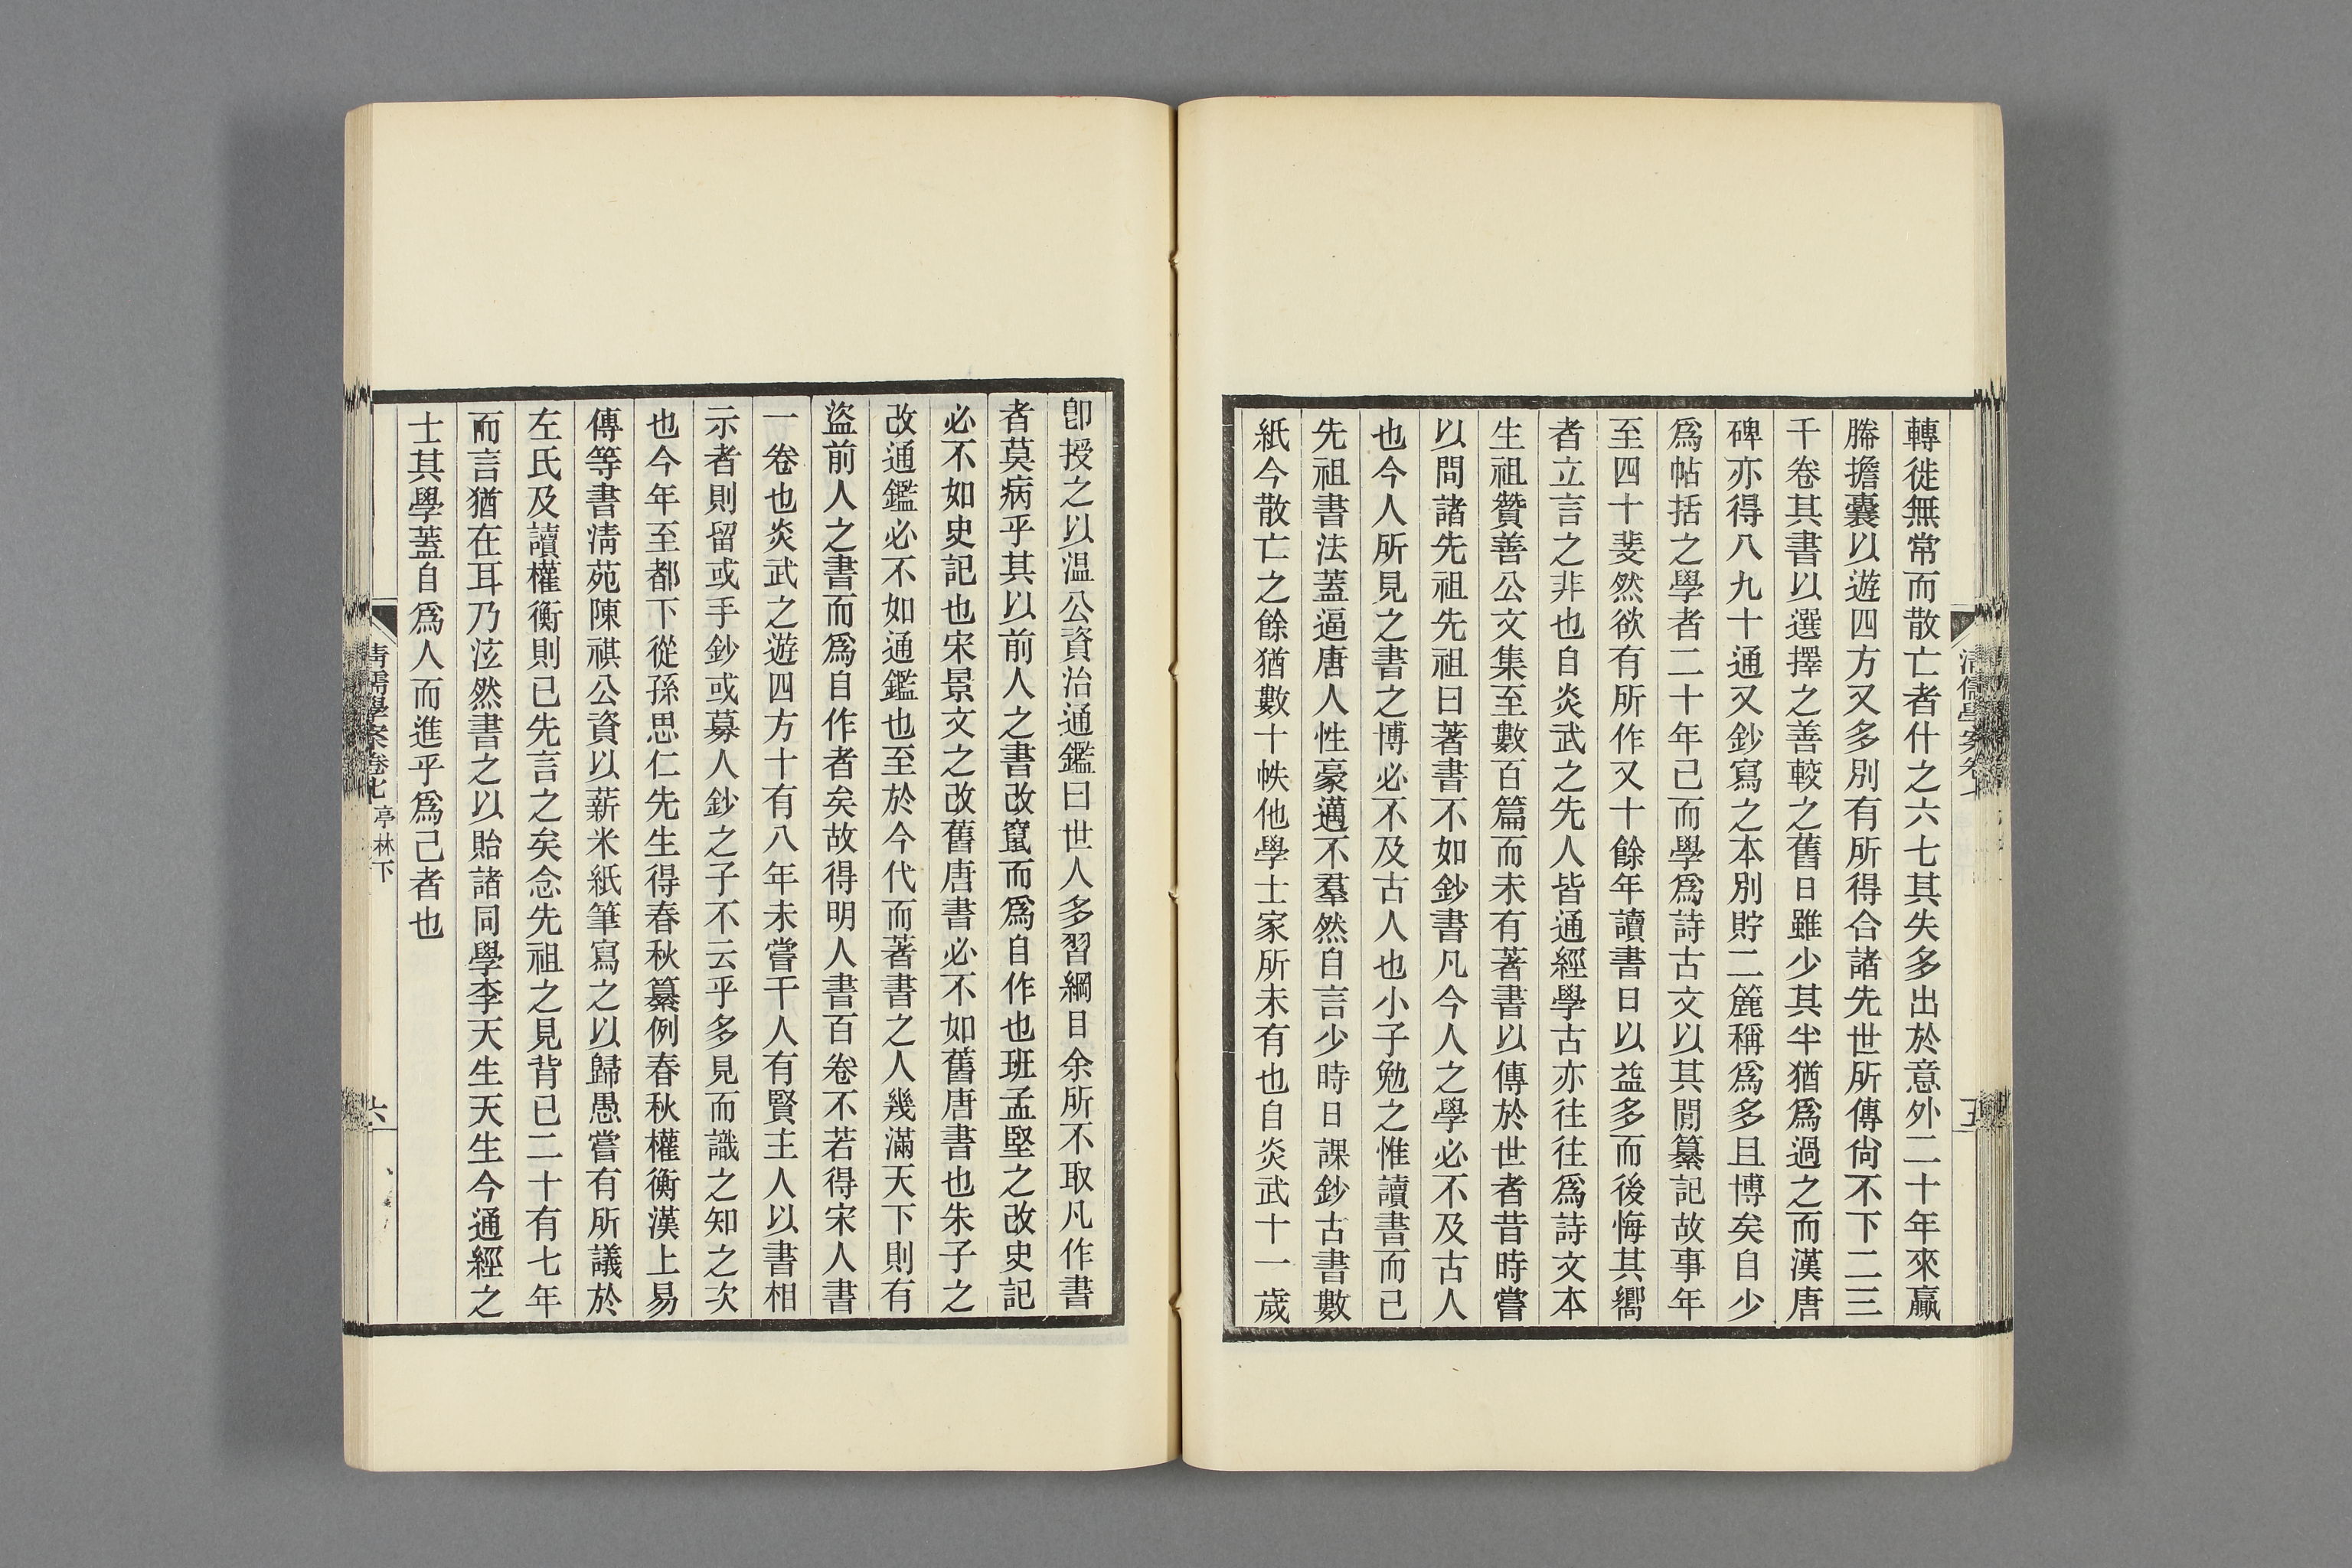 轉徙無常而散亡者什之六七其失多出於意外二十年來贏
縢擔囊以遊四方又多別有所得合諸先世所傳尙不下二三
千卷其書以選擇之善較之舊日雖少其半猶爲過之而漢唐
碑亦得八九十通又鈔寫之本別貯二簏稱爲多且博矣自少
爲帖括之學者二十年已而學爲詩古文以其閒纂記故事年
至四十斐然欲有所作又十餘年讀書日以益多而後悔其嚮
者立言之非也自炎武之先人皆通經學古亦往往爲詩文本
生祖贊善公文集至數百篇而未有著書以傳於世者昔時嘗
以問諸先祖先祖曰著書不如鈔書凡今人之學必不及古人
也今人所見之書之博必不及古人也小子勉之惟讀書而已
先祖書法蓋逼唐人性豪邁不羣然自言少時日課鈔古書數
紙今散亡之餘猶數十帙他學士家所未有也自炎武十一歲
卽授之以溫公資治通鑑曰世人多習綱目余所不取凡作書
者莫病乎其以前人之書改竄而爲自作也班孟堅之改史記
必不如史記也宋景文之改舊唐書必不如舊唐書也朱子之
改通鑑必不如通鑑也至於今代而著書之人幾滿天下則有
盜前人之書而爲自作者矣故得明人書百卷不若得宋人書
一卷也炎武之遊四方十有八年未嘗干人有賢主人以書相
示者則留或手鈔或募人鈔之子不云乎多見而識之知之次
也今年至都下從孫思仁先生得春秋纂例春秋權衡漢上易
傳等書淸苑陳祺公資以薪米紙筆寫之以歸愚嘗有所議於
左氏及讀權衡則已先言之矣念先祖之見背已二十有七年
而言猶在耳乃泫然書之以貽諸同學李天生天生今通經之
士其學蓋自爲人而進乎爲己者也
清儒學案卷七 亭林下
六